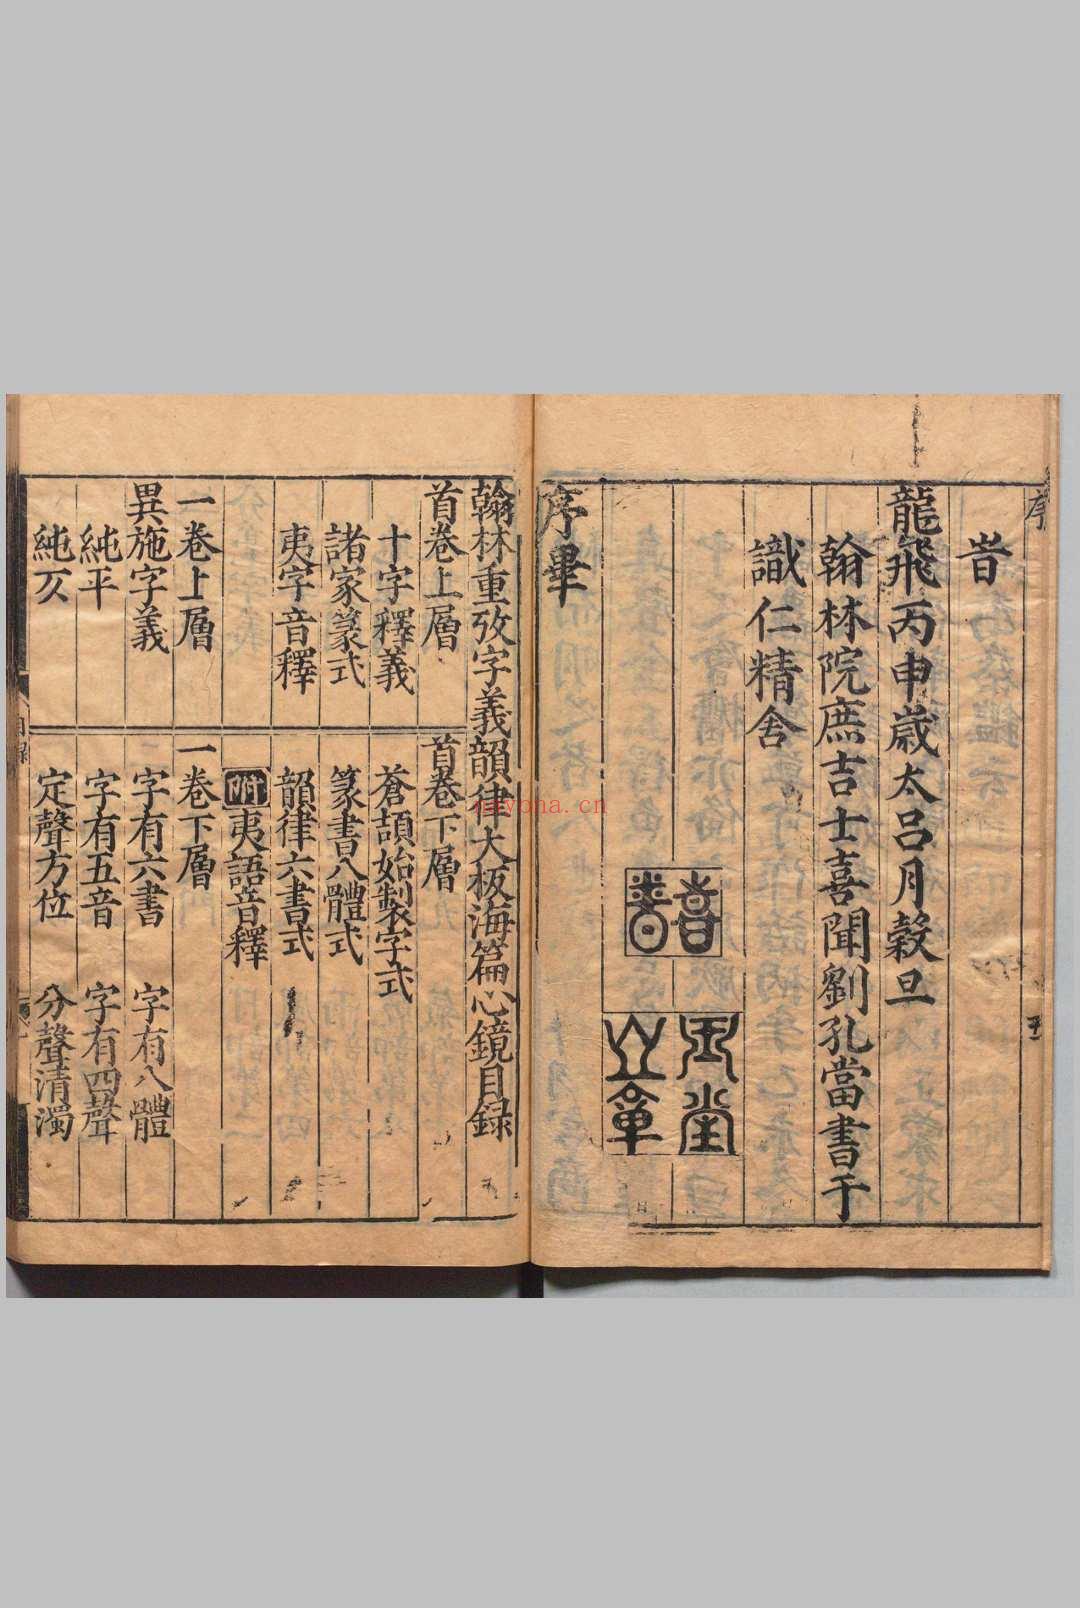 序
旹
龍飛丙申歲太呂月穀旦
翰林院庶吉士喜聞劉孔當書于
識仁精舍
序畢
翰林重攷字義韻律大板海篇心鏡目録
首卷上層
十字釋義
諸家篆式
夷字音釋
一卷上層
異施字義
純平
純仄
首卷下層
蒼頡始製字式
篆書八體式
韻律六書式
附夷語音釋
一卷下層
字有六書 字有八體
字有五音 字有四聲
定聲方位 分聲清濁
nayona.cn